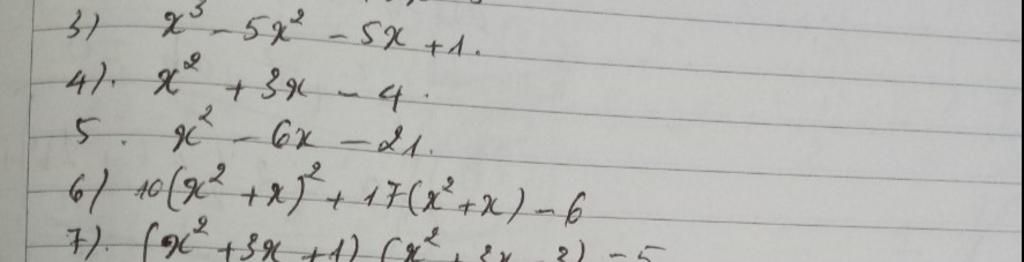 3) x³ - 5x² - 5x + 1.
4). x² + 3x - 4.
5. x² - 6x - 21.
6) 10(x² + x)² + 17(x² + x) - 6
7). (x² + 3x + 1) (x² + 3x - 3) - 5